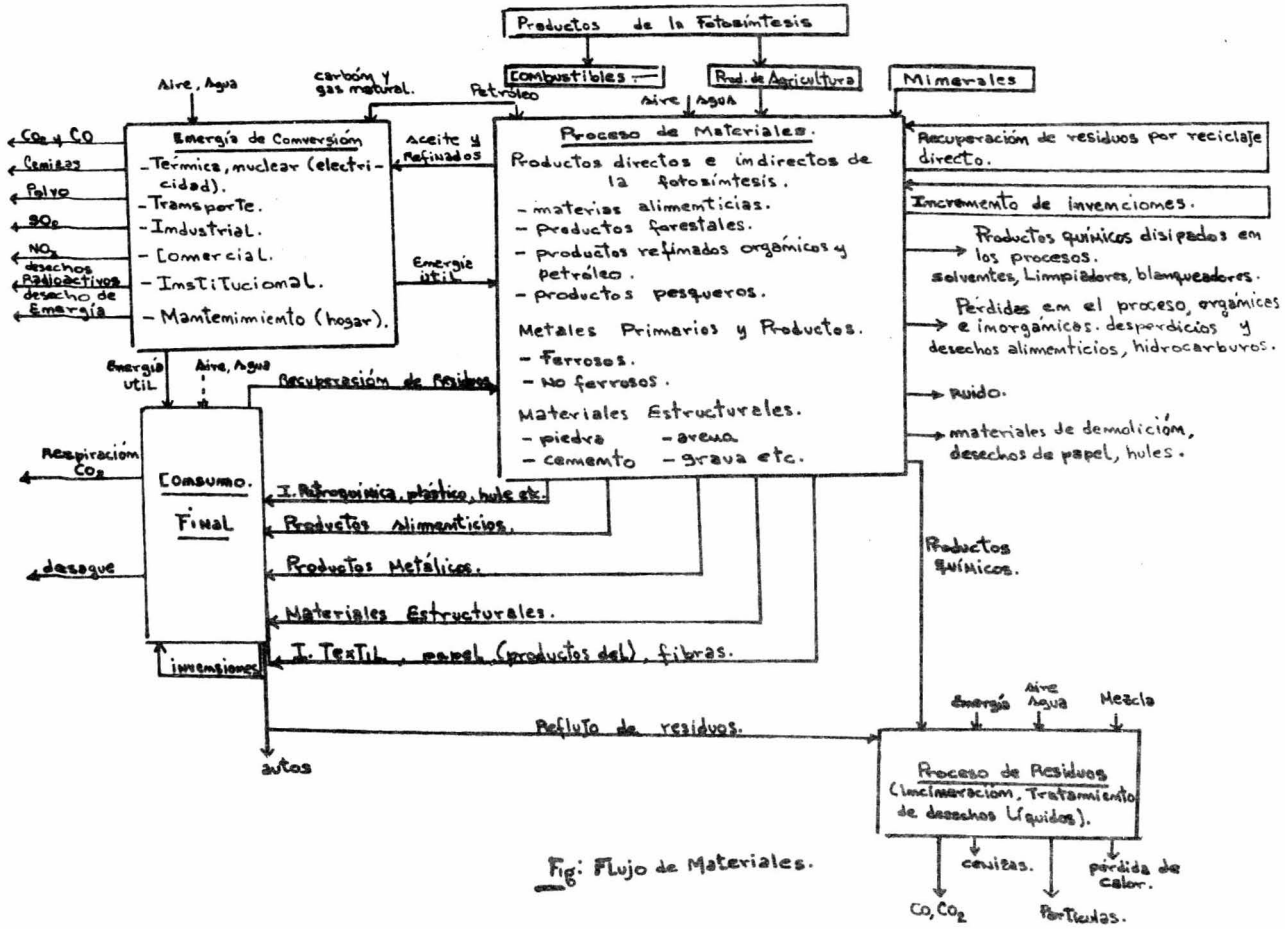 Productos de la Fotosíntesis
Combustibles.
Prod. de Agricultura
Minerales
Aire, Agua
carbón y
gas natural.
Petróleo
Aire
Agua
CO₂ y CO
Cenizas
Polvo
SO₂
NO₂
desechos
Radioactivos
desecho de
Energía
Energía de Conversión
-Térmica, nuclear (electri-
cidad).
-Transporte.
-Industrial.
-Comercial.
-Institucional.
-Mantenimiento (hogar).
Aceite y
Refinados
Energía
útil
Proceso de Materiales.
Productos directos e indirectos de
la fotosíntesis.
- materias alimenticias.
- productos forestales.
- productos refinados orgánicos y
petróleo.
- productos pesqueros.
Metales Primarios y Productos.
- Ferrosos.
- No ferrosos.
Materiales Estructurales.
- piedra - arena
- cemento - grava etc.
Recuperación de residuos por reciclaje
directo.
Incremento de invenciones.
Productos químicos disipados en
los procesos.
solventes, Limpiadores, blanqueadores.
Pérdidas en el proceso, orgánicas
e inorgánicas. desperdicios y
desechos alimenticios, hidrocarburos.
Ruido.
materiales de demolición,
desechos de papel, hules.
Energía
util
Aire, Agua
Recuperación de Residuos
Respiración
CO₂
desague
Consumo.
Final
I. Petroquímica, plástico, hule etc.
Productos Alimenticios.
Productos Metálicos.
Materiales Estructurales.
I. Textil, papel (productos del), fibras.
invensiones
autos
Reflujo de residuos.
Productos
químicos.
Energía
Aire
Agua
Mezcla
Proceso de Residuos
(Incineración, Tratamiento
de desechos Líquidos).
CO, CO₂
cenizas.
Partículas.
pérdida de
calor.
Fig: Flujo de Materiales.